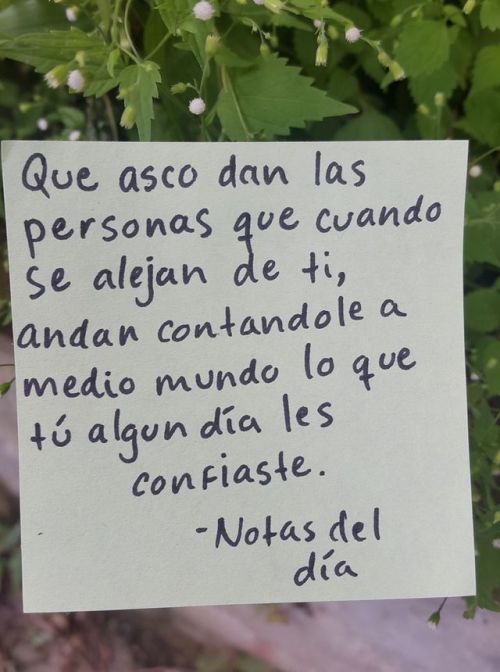 Que asco dan las
personas que cuando
se alejan de ti,
andan contandole a
medio mundo lo que
tú algun día les
confiaste.
-Notas del
día